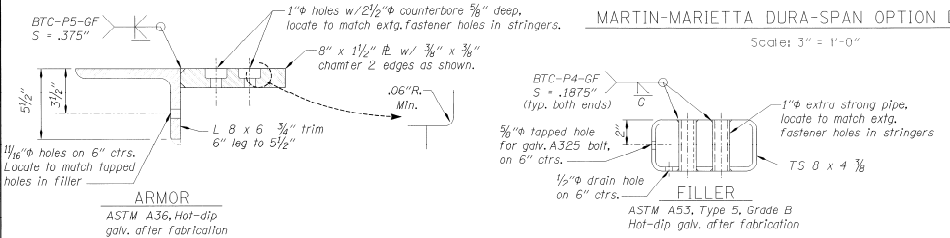 BTC-P5-GF
S = .375"
1"Φ holes w/2½"Φ counterbore ⅝" deep,
locate to match extg. fastener holes in stringers.
8" x 1½" ℄ w/ ⅜" x ⅜"
chamfer 2 edges as shown.
.06"R.
Min.
5½"
3½"
L 8 x 6 ¾" trim
6" leg to 5½"
11/16"Φ holes on 6" ctrs.
Locate to match tapped
holes in filler
ARMOR
ASTM A36, Hot-dip
galv. after fabrication
MARTIN-MARIETTA DURA-SPAN OPTION D
Scale: 3" = 1'-0"
BTC-P4-GF
S = .1875"
(typ. both ends)
C
1"Φ extra strong pipe,
locate to match extg.
fastener holes in stringers
2"
⅝"Φ tapped hole
for galv. A325 bolt,
on 6" ctrs.
TS 8 x 4 ⅜
½"Φ drain hole
on 6" ctrs.
FILLER
ASTM A53, Type 5, Grade B
Hot-dip galv. after fabrication